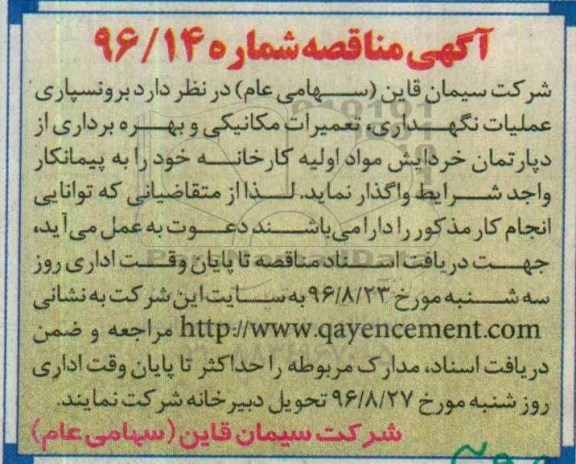 آگهی مناقصه شماره ۹۶/۱۴
شرکت سیمان قاین (سهامی عام) در نظر دارد برونسپاری
عملیات نگهداری، تعمیرات مکانیکی و بهره برداری از
دپارتمان خردایش مواد اولیه کارخانه خود را به پیمانکار
واجد شرایط واگذار نماید. لذا از متقاضیانی که توانایی
انجام کار مذکور را دارا می‌باشند دعوت به عمل می‌آید،
جهت دریافت اسناد مناقصه تا پایان وقت اداری روز
سه شنبه مورخ ۹۶/۸/۲۳ به سایت این شرکت به نشانی
http://www.qayencement.com مراجعه و ضمن
دریافت اسناد، مدارک مربوطه را حداکثر تا پایان وقت اداری
روز شنبه مورخ ۹۶/۸/۲۷ تحویل دبیرخانه شرکت نمایند.
شرکت سیمان قاین (سهامی عام)